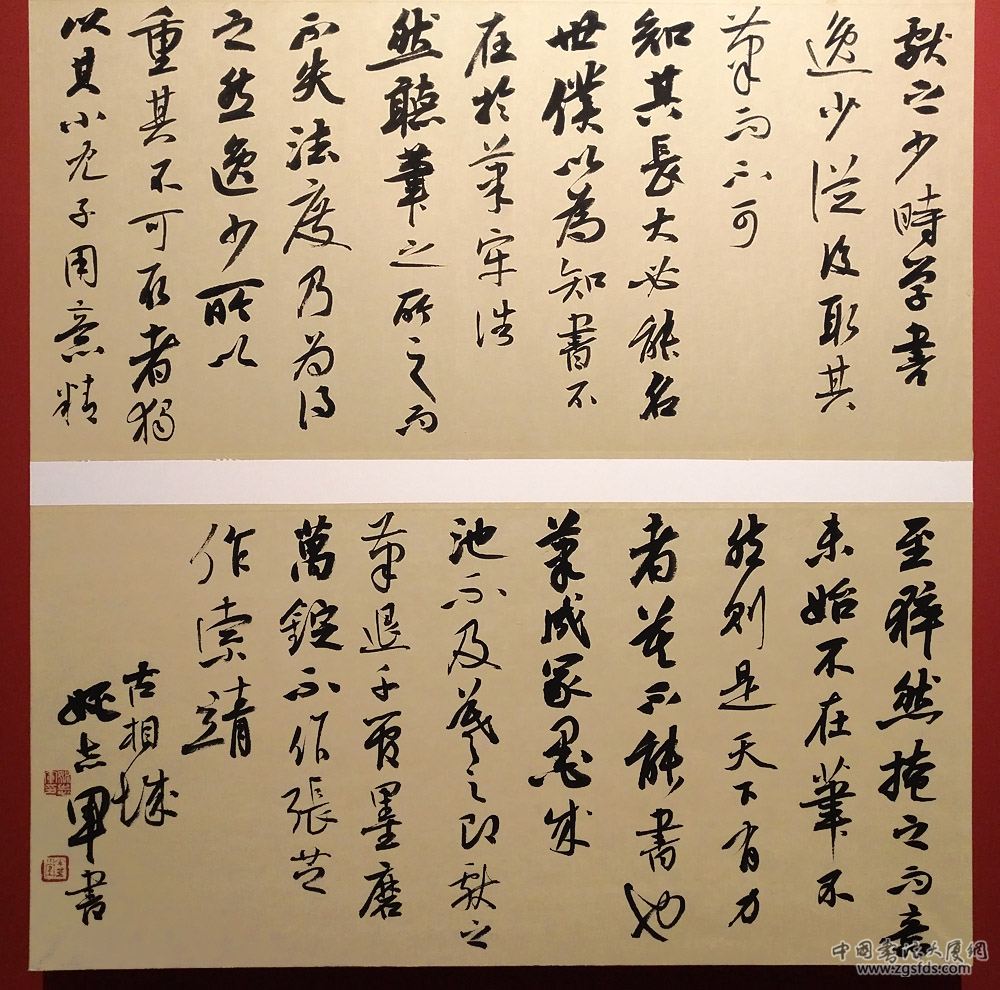 獻之少時學書
逸少從後取其
筆而不可
知其長大必能名
世僕以為知書不
在於筆牢浩
然聽筆之所之而
不失法度乃為得
之然逸少所以
重其不可取者獨
以其小兒子用意精
至猝然掩之而意
未始不在筆不
然則是天下有力
者莫不能書也
筆成冢墨成
池不及羲之即獻之
筆退千管墨磨
萬錠不作張芝
作索靖
古相城
姚志軍書
中國書法大厦網
www.zgsfds.com